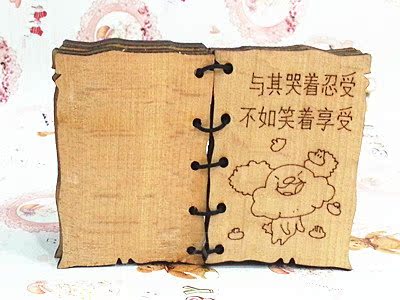 与其哭着忍受
不如笑着享受